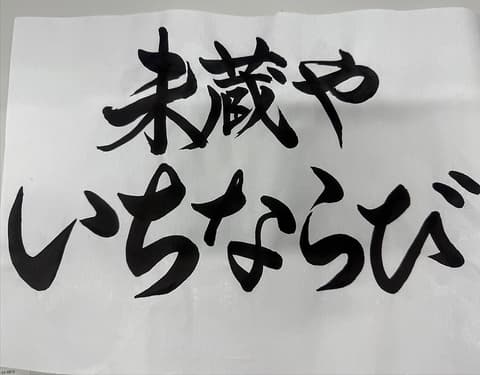 未蔵や
いちならび